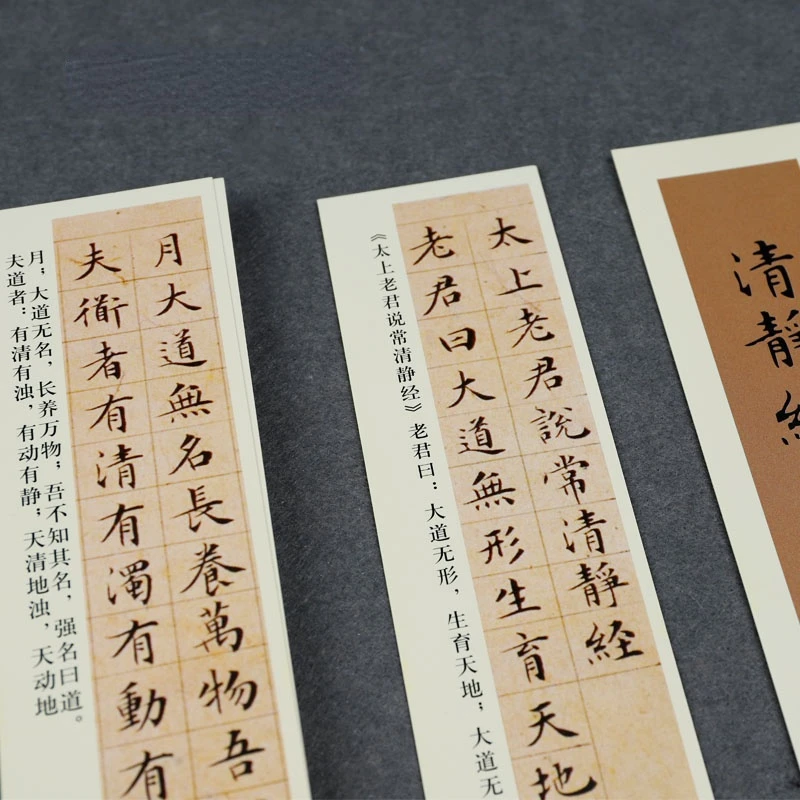 清靜
太上老君說常清靜經
老君曰大道無形生育天地
《太上老君说常清静经》老君曰：大道无形，生育天地；大道无
月大道無名長養萬物吾
夫衜者有清有濁有動有
月；大道无名，长养万物；吾不知其名，强名曰道。
夫道者：有清有浊，有动有静；天清地浊，天动地